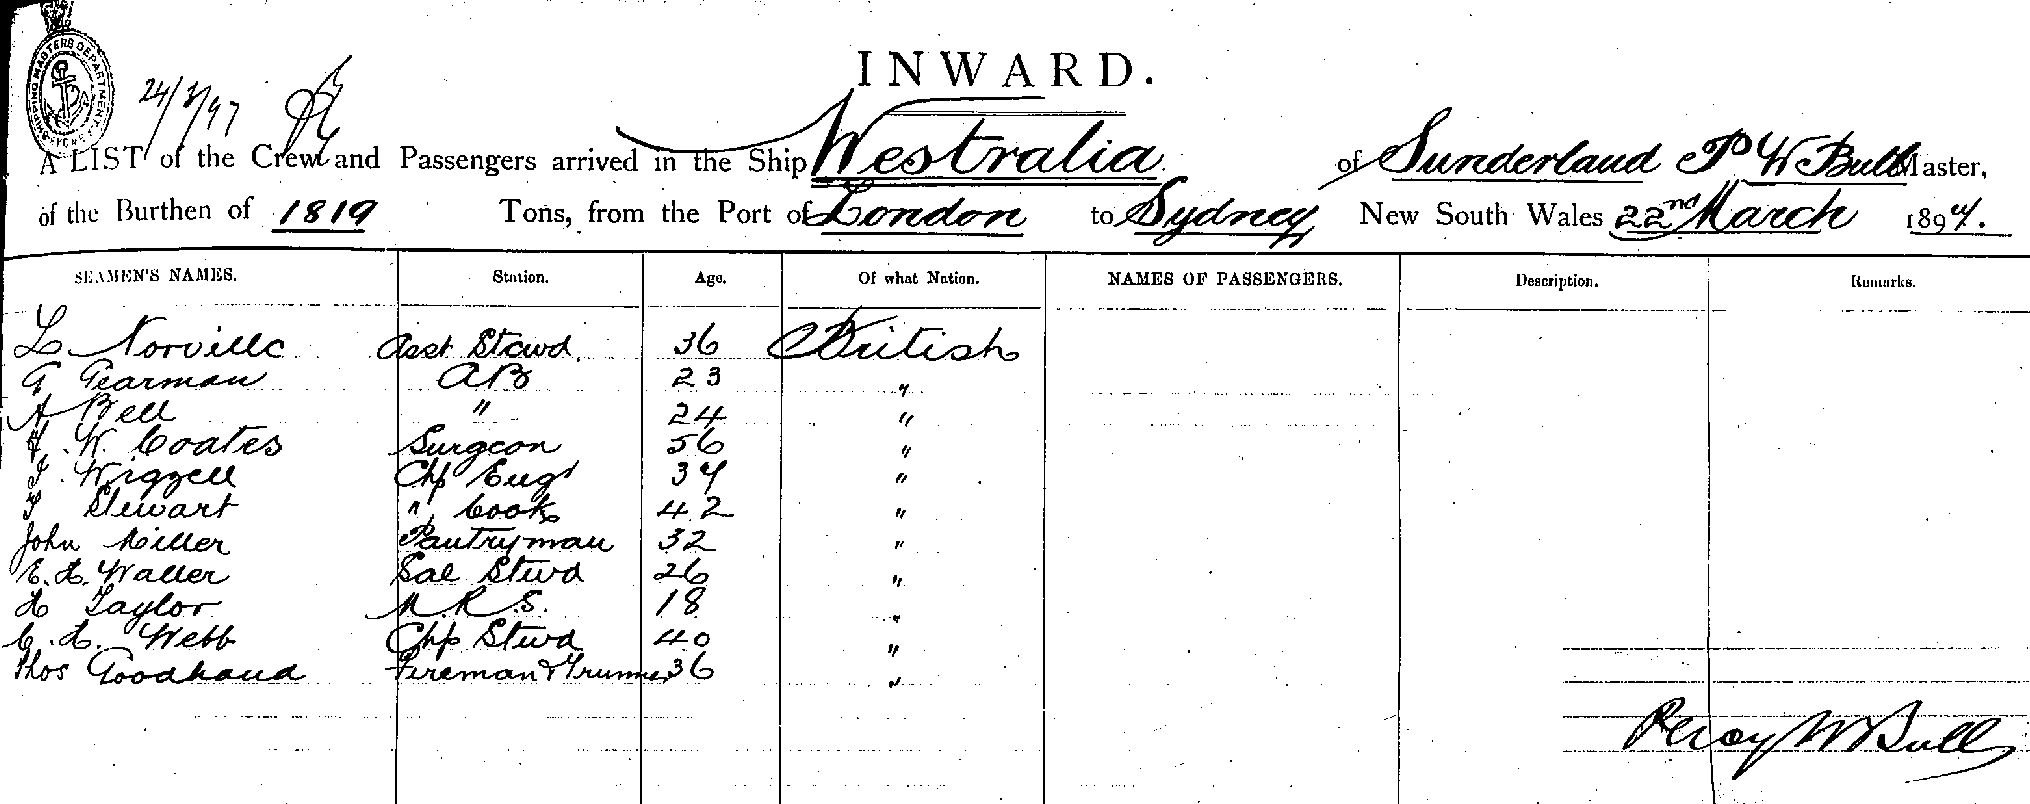 SHIPPING MASTERS DEPARTMENT
24/3/97
INWARD.
A LIST of the Crew and Passengers arrived in the Ship Westralia of Sunderland P W Bull Master,
of the Burthen of 1819 Tons, from the Port of London to Sydney New South Wales 22nd March 1897.
SEAMEN'S NAMES. Station. Age. Of what Nation. NAMES OF PASSENGERS. Description. Remarks.
L Norville Asst Stewd. 36 British
G Pearman AB 23 "
A Bell " 24 "
W. Coates Surgeon 56 "
Wiggell Chf Eng 34 "
Stewart " Cook 42 "
John Miller Pantryman 32 "
E. H. Waller Sal Stwd 26 "
H Taylor M.R.S. 18 "
C. H. Webb Chf Stwd 40 "
Thos Goodhand Fireman & Trimmer 36 "
Percy W Bull